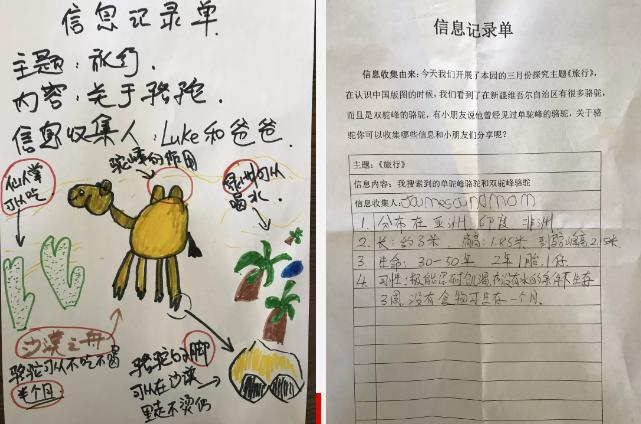 信息记录单
主题:旅行.
内容:关于骆驼.
信息收集人:Luke和爸爸.
驼峰的作用
仙人掌
可以吃
绿洲可以
喝水.
沙漠之舟
骆驼可以不吃不喝
半个月.
骆驼的脚
可以在沙漠
里走不烫伤
信息记录单
信息收集由来:今天我们开展了本园的三月份探究主题《旅行》,
在认识中国版图的时候,我们看到了在新疆维吾尔自治区有很多骆驼,
而且是双驼峰的骆驼,有小朋友说他曾经见过单驼峰的骆驼,关于骆
驼你可以收集哪些信息和小朋友们分享呢?
主题:《旅行》
信息内容:我搜索到的单驼峰骆驼和双驼峰骆驼
信息收集人:James and mom
1. 分布在亚洲 印度 非洲
2. 长:约3米. 肩高:1.85米 到驼峰高2.15米.
3. 生命:30-50年 2年1胎1仔
4. 习性:极能忍耐饥渴,在没有水的条件下生存
3周,没有食物可生存一个月.